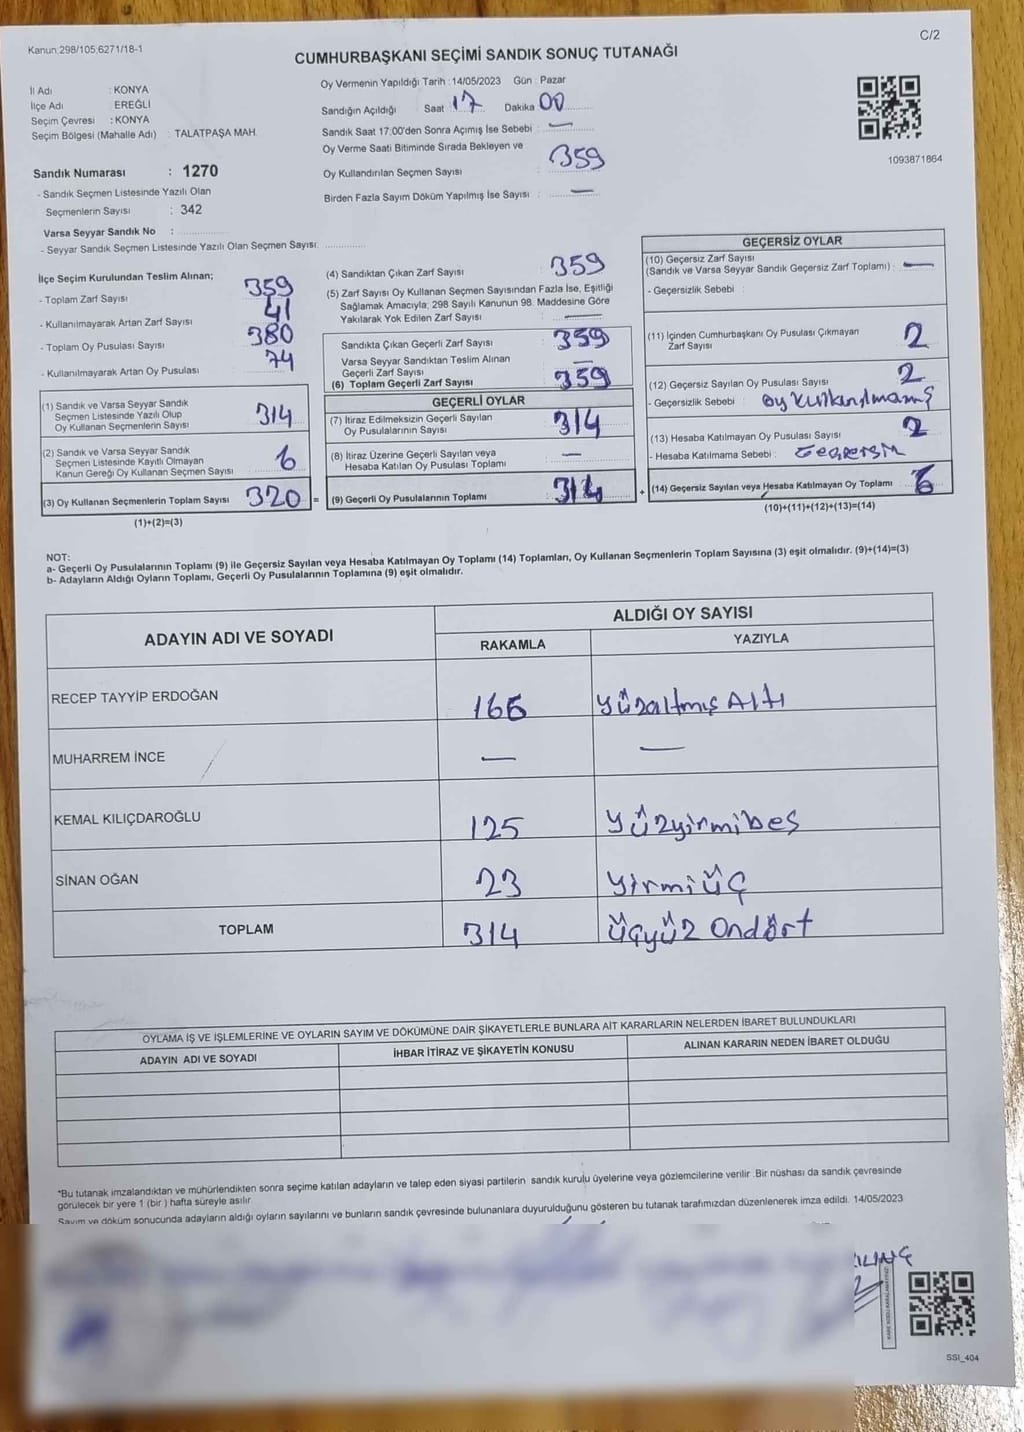 Kanun:298/105;6271/18-1
C/2
CUMHURBAŞKANI SEÇİMİ SANDIK SONUÇ TUTANAĞI
İl Adı : KONYA
İlçe Adı : EREĞLİ
Seçim Çevresi : KONYA
Seçim Bölgesi (Mahalle Adı) : TALATPAŞA MAH.
Sandık Numarası : 1270
- Sandık Seçmen Listesinde Yazılı Olan
Seçmenlerin Sayısı : 342
Varsa Seyyar Sandık No :
- Seyyar Sandık Seçmen Listesinde Yazılı Olan Seçmen Sayısı:
Oy Vermenin Yapıldığı Tarih : 14/05/2023 Gün : Pazar
Sandığın Açıldığı Saat 17 Dakika 00
Sandık Saat 17:00'den Sonra Açımış İse Sebebi : —
Oy Verme Saati Bitiminde Sırada Bekleyen ve
Oy Kullandırılan Seçmen Sayısı : 359
Birden Fazla Sayım Döküm Yapılmış İse Sayısı : —
1093871864
İlçe Seçim Kurulundan Teslim Alınan;
- Toplam Zarf Sayısı 359
- Kullanılmayarak Artan Zarf Sayısı 41
- Toplam Oy Pusulası Sayısı 380
- Kullanılmayarak Artan Oy Pusulası 74
(1) Sandık ve Varsa Seyyar Sandık
Seçmen Listesinde Yazılı Olup
Oy Kullanan Seçmenlerin Sayısı 314
(2) Sandık ve Varsa Seyyar Sandık
Seçmen Listesinde Kayıtlı Olmayan
Kanun Gereği Oy Kullanan Seçmen Sayısı 6
(3) Oy Kullanan Seçmenlerin Toplam Sayısı 320 =
(1)+(2)=(3)
(4) Sandıktan Çıkan Zarf Sayısı 359
(5) Zarf Sayısı Oy Kullanan Seçmen Sayısından Fazla İse, Eşitliği
Sağlamak Amacıyla, 298 Sayılı Kanunun 98. Maddesine Göre
Yakılarak Yok Edilen Zarf Sayısı —
Sandıkta Çıkan Geçerli Zarf Sayısı : 359
Varsa Seyyar Sandıktan Teslim Alınan
Geçerli Zarf Sayısı —
(6) Toplam Geçerli Zarf Sayısı 359
GEÇERLİ OYLAR
(7) İtiraz Edilmeksizin Geçerli Sayılan
Oy Pusulalarının Sayısı 314
(8) İtiraz Üzerine Geçerli Sayılan veya
Hesaba Katılan Oy Pusulası Toplamı —
(9) Geçerli Oy Pusulalarının Toplamı : 314 +
GEÇERSİZ OYLAR
(10) Geçersiz Zarf Sayısı
(Sandık ve Varsa Seyyar Sandık Geçersiz Zarf Toplamı) : —
- Geçersizlik Sebebi :
(11) İçinden Cumhurbaşkanı Oy Pusulası Çıkmayan
Zarf Sayısı 2
(12) Geçersiz Sayılan Oy Pusulası Sayısı 2
- Geçersizlik Sebebi : oy kullanılmamış
(13) Hesaba Katılmayan Oy Pusulası Sayısı 2
- Hesaba Katılmama Sebebi :
(14) Geçersiz Sayılan veya Hesaba Katılmayan Oy Toplamı 6
(10)+(11)+(12)+(13)=(14)
NOT:
a- Geçerli Oy Pusulasının Toplamı (9) ile Geçersiz Sayılan veya Hesaba Katılmayan Oy Toplamı (14) Toplamları, Oy Kullanan Seçmenlerin Toplam Sayısına (3) eşit olmalıdır. (9)+(14)=(3)
b- Adayların Aldığı Oyların Toplamı, Geçerli Oy Pusulalarının Toplamına (9) eşit olmalıdır.
ADAYIN ADI VE SOYADI
ALDIĞI OY SAYISI
RAKAMLA YAZIYLA
RECEP TAYYİP ERDOĞAN 166 yüzaltmış Altı
MUHARREM İNCE — —
KEMAL KILIÇDAROĞLU 125 yüzyirmibeş
SİNAN OĞAN 23 yirmi üç
TOPLAM 314 üçyüz Ondört
OYLAMA İŞ VE İŞLEMLERİNE VE OYLARIN SAYIM VE DÖKÜMÜNE DAİR ŞİKAYETLERLE BUNLARA AİT KARARLARIN NELERDEN İBARET BULUNDUKLARI
ADAYIN ADI VE SOYADI İHBAR İTİRAZ VE ŞİKAYETİN KONUSU ALINAN KARARIN NEDEN İBARET OLDUĞU
*Bu tutanak imzalandıktan ve mühürlendikten sonra seçime katılan adayların ve talep eden siyasi partilerin sandık kurulu üyelerine veya gözlemcilerine verilir. Bir nüshası da sandık çevresinde
görülecek bir yere 1 (bir ) hafta süreyle asılır.
Sayım ve döküm sonucunda adayların aldığı oyların sayılarını ve bunların sandık çevresinde bulunanlara duyurulduğunu gösteren bu tutanak tarafımızdan düzenlenerek imza edildi. 14/05/2023
SSI_404